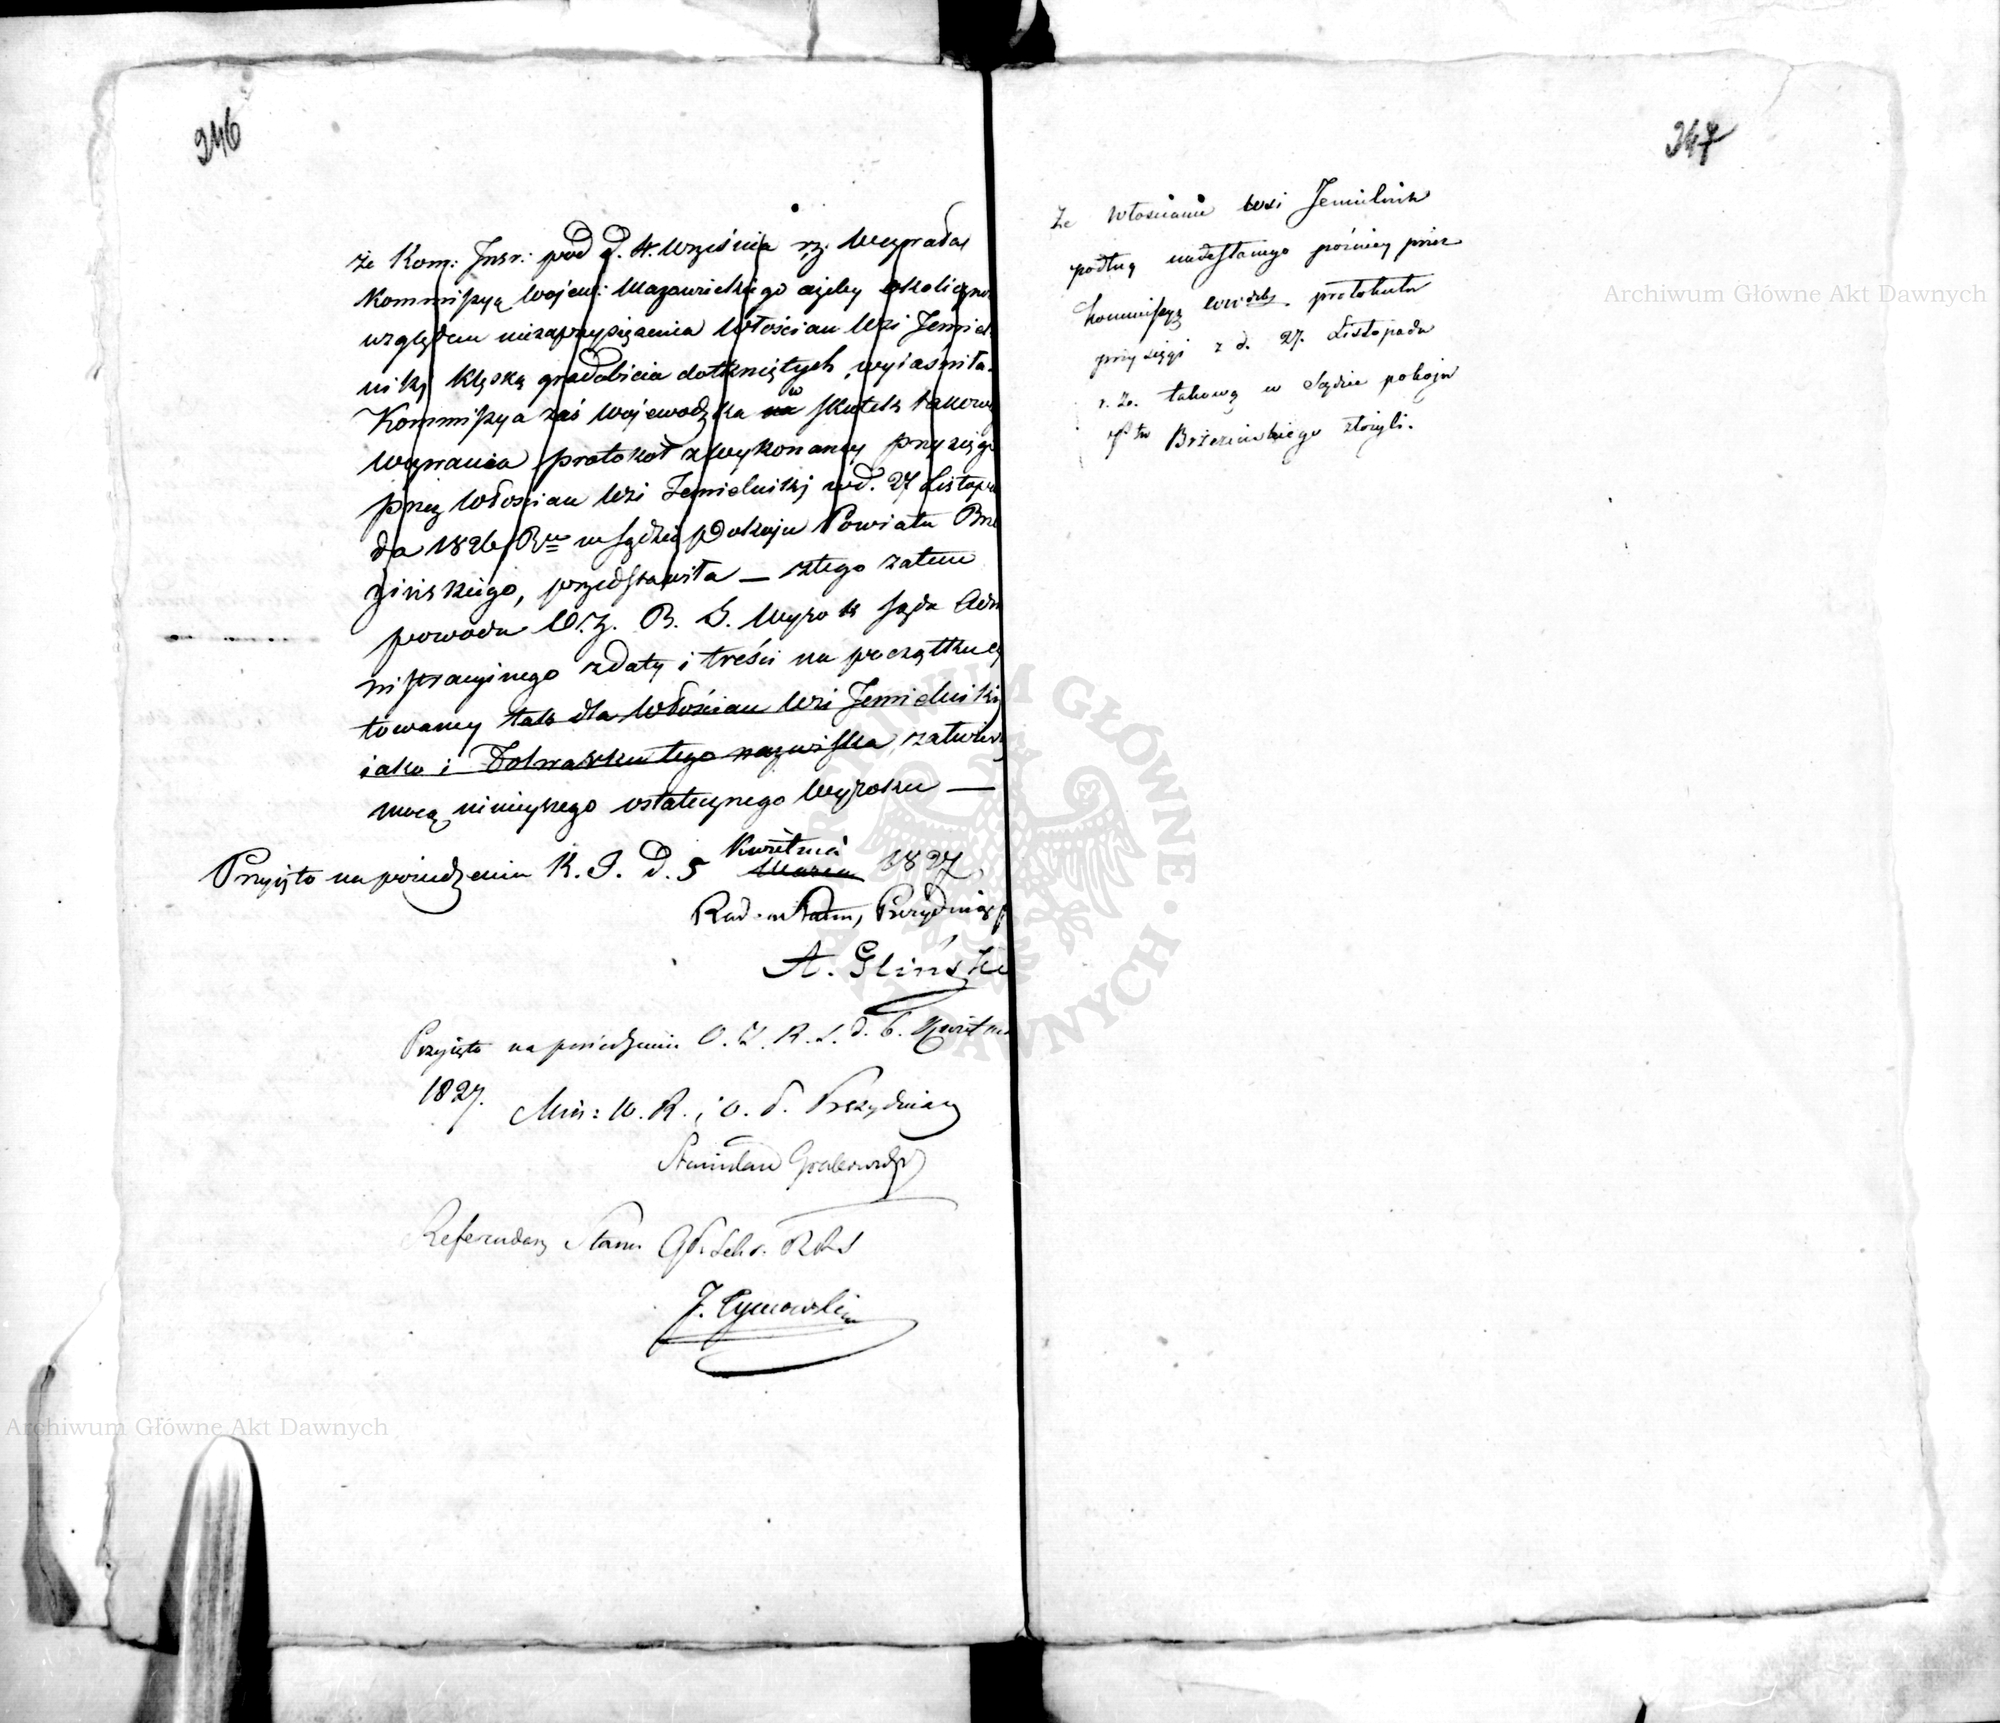 246
że Kom: Instr: pod d. 4. Września r.z. Wezwała
Kommissyą Wojew: Mazowieckiego ażeby okoliczno
względem niezaprzysiężenia Włościan Wsi Jemiel
niki klęską gradobicia dotkniętych, wyiaśniła.
Kommissya zaś Wojewodzka na w skutek takowego
wezwania protokoł z wykonaney przysięgi
przez Włościan Wsi Jemielniki w d. 27 Listopa
da 1826 Ru w Sądzie Pokoju Powiatu Brze
zińskiego, przedstawiła — z tego zatem
powodu O.Z. R. S. Wyrok Sądu Adm
nistracyinego z daty i treści na początku cy
towaney tak dla Włościan Wsi Jemielniki
iako i Folwarku tego nazwiska, zatwier
mocą ninieyszego ostatecznego Wyroku —
Przyięto na posiedzeniu K. I. D. 5 Kwietnia Marca 1827.
Rad. Stanu, Prezyduiący
A. Gliński
Przyięto na posiedzeniu O. Z. R. S. d. 6. Kwietnia
1827. Min: W. R. i O. P. Prezyduiący
Stanisław Grabowski
Referendarz Stanu
J. Tymowski
247
Że Włościanie wsi Jemielnik
podług nadesłanego poźniey przez
Kommissyą Wdzką protokułu
przysięgi z d. 27. Listopada
r. z. takową w Sądzie pokoju
Brzezińskiego złożyli.
Archiwum Główne Akt Dawnych
Archiwum Główne Akt Dawnych
ARCHIWUM GŁÓWNE AKT DAWNYCH